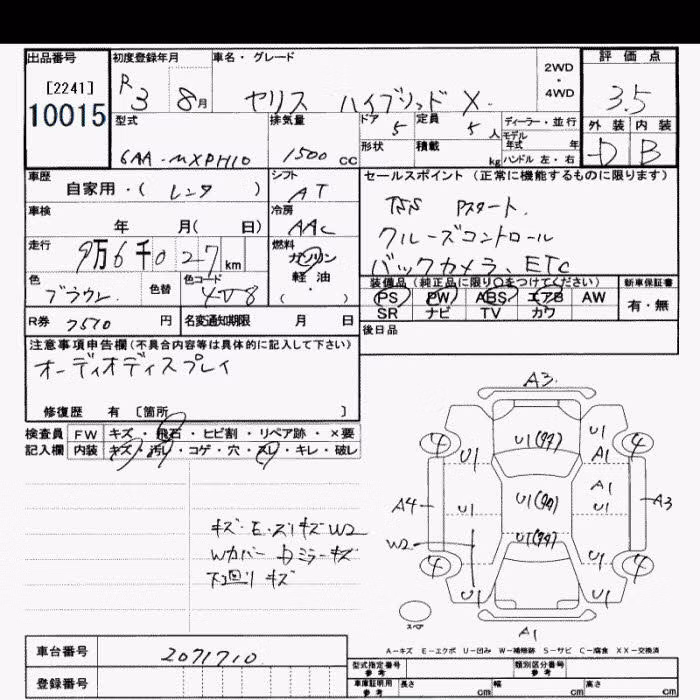 出品番号
[2241]
10015
初度登録年月
R3 8月
車名・グレード
ヤリス ハイブリッド X
2WD
・
4WD
評価点
3.5
外装 内装
D B
型式
6AA-MXPH10
排気量
1500 cc
ドア
5
定員
5 人
ディーラー・並行
モデル
年式 年
形状
積載
kg
ハンドル 左・右
車歴
自家用・( レンタ )
シフト
AT
セールスポイント (正常に機能するものに限ります)
TSS Pスタート.
クルーズコントロール
バックカメラ、ETC
車検
年 月( 日)
冷房
AAC
走行
9万6千027km
燃料
ガソリン
軽油
・
( )
色
ブラウン
色替
色コード
4V8
装備品(純正品に限り○をつけてください)
新車保証書
PS PW ABS エアB AW
SR ナビ TV カワ
有・無
R券 7510 円
名変通知期限 月 日
後日品
注意事項申告欄(不具合内容等は具体的に記入して下さい)
オーディオディスプレイ
修復歴 有 [箇所 ]
検査員 FW キズ・飛石・ヒビ割・リペア跡・×要
記入欄 内装 キズ・汚レ・コゲ・穴・スレ・キレ・破レ
キズ・E・スリキズW2
Wカバー Dミラーキズ
下回リ キズ
A3
4 U1 U1(99) U1 A1 4
A4 U1 U1(99) A1 U1 A3
W2 U1(99)
4 U1 U1 U1 4
U1
スペア
A1
A-キズ E-エクボ U-凹み W-補修跡 S-サビ C-腐食 XX-交換済
車台番号
2071710
登録番号
型式指定番号
参考
類別区分番号
参考
車庫証明用
参考
長さ cm
幅 cm
高さ cm